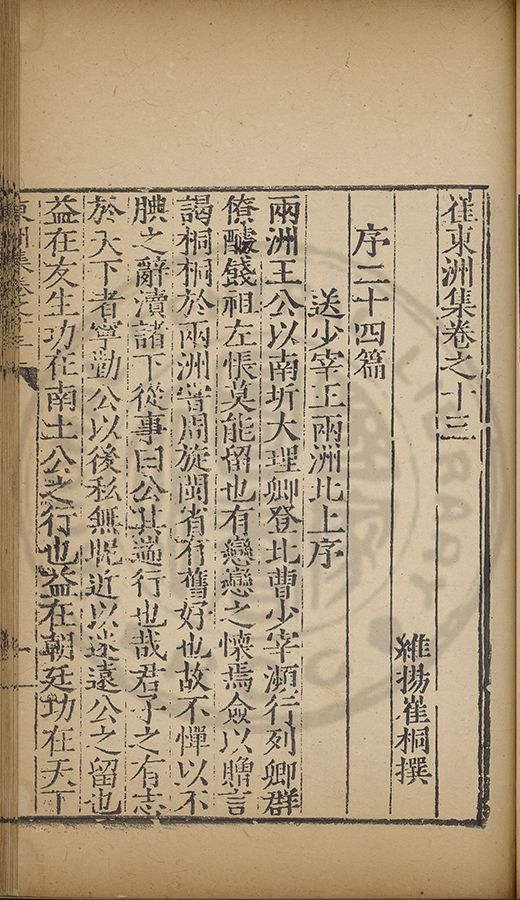 崔東洲集卷之十三
維揚崔桐撰
序二十四篇
送少宰王兩洲北上序
兩洲王公以南圻大理卿登北曹少宰瀕行列卿群
僚醵餞祖左悵莫能留也有戀戀之懷焉僉以贈言
謁桐桐於兩洲嘗周旋閩省有舊好也故不憚以不
腆之辭瀆諸下從事曰公其遄行也哉君子之有志
於天下者寧勤公以後私無昵近以迷遠公之留也
益在友生功在南土公之行也益在朝廷功在天下
東洲集卷之十三